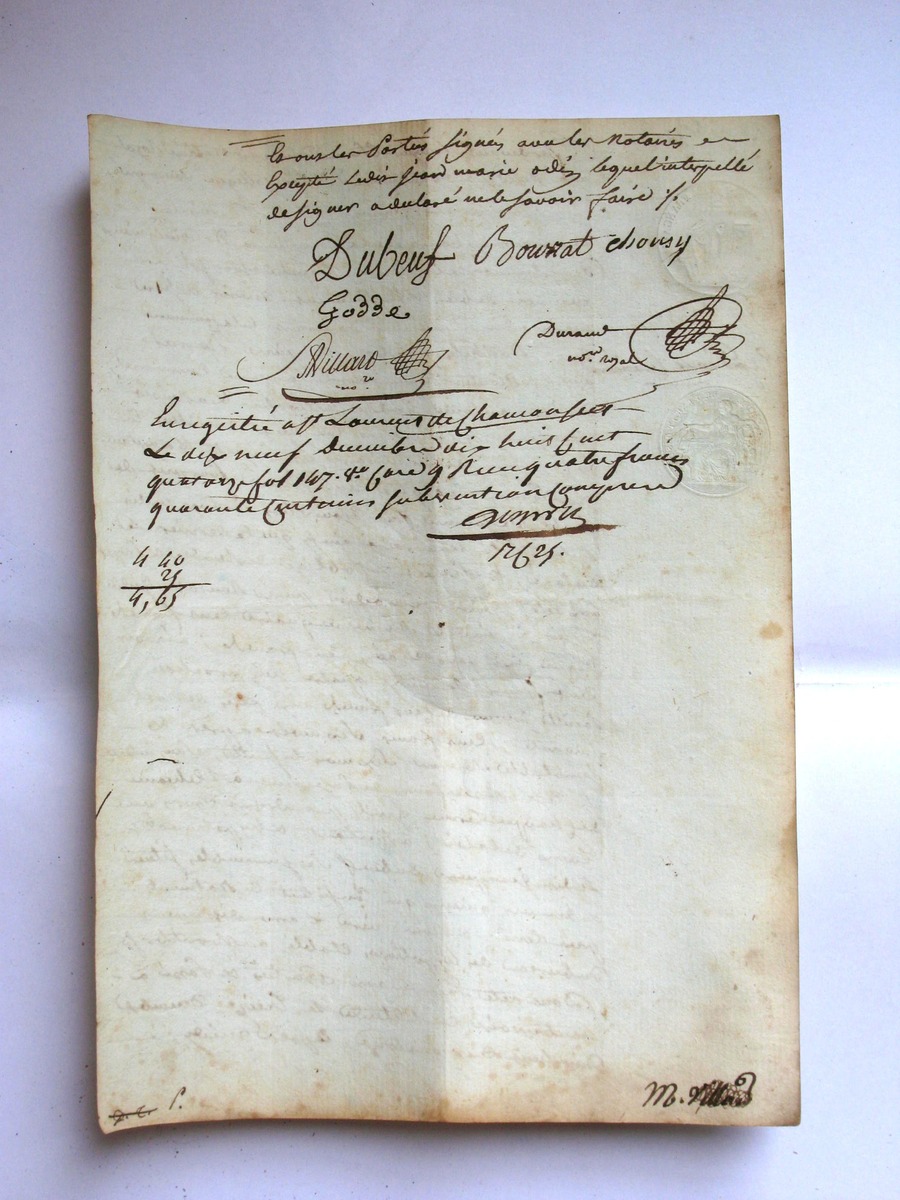 tous les Parties signés avec les Notaires
Excepté Ledit jean marie odin lequel interpellé
de signer a declaré ne le savoir faire /.
Dubeuf Bourrat chousy
Godde
Villard Durand
no.re no.re royal
Enregistré a St Laurent de Chamousset
Le dix neuf decembre dix huit cent
quatorze fol 147. v.o Case 9 Reçu quatre francs
quarante Centimes subvention Comprise
4 40
25
4,65
M. Villard